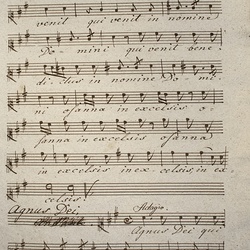 venit qui venit in nomine
Do- mini qui venit bene-
di- ctus in nomine Do- mi-
ni osanna in excelsis o-
sanna in excelsis osanna
in excelsis in ex- celsis, in ex-
celsis
Agnus Dei Adagio.
Agnus Dei qui